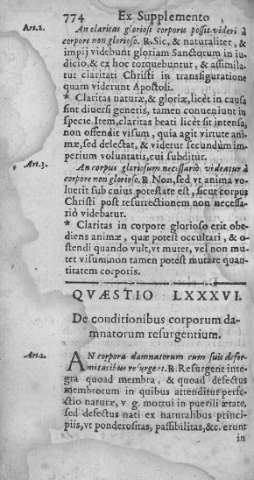 774 Ex Supplemento
Art.2. An claritas gloriosi corporis possit videri à
corpore non glorioso. R. Sic, & naturaliter, &
impij videbunt gloriam Sanctorum in iu-
dicio, & ex hoc torquebuntur, & assimila-
tur claritati Christi in transfiguratione
quam viderunt Apostoli.
* Claritas naturæ, & gloriæ, licèt in causa
sint diuersi generis, tamen conueniunt in
specie. Item, claritas beati licèt sit intensa,
non offendit visum, quia agit virtute ani-
mæ, sed delectat, & videtur secundùm im-
perium voluntatis, cui subditur.
Art.3. An corpus gloriosum necessariò videatur à
corpore non glorioso. R. Non, sed vt anima vo-
luerit sub eius potestate est, sicut corpus
Christi post resurrectionem non necessa-
riò videbatur.
* Claritas in corpore glorioso erit obe-
diens animæ, quæ potest occultari, & o-
stendi quando vult, vt mutet, vel non mu-
tet visum: non tamen potest mutare quan-
titatem corporis.
QVÆSTIO LXXXVI.
De conditionibus corporum da-
mnatorum resurgentium.
Art.1. AN corpora damnatorum cum suis defor-
mitatibus resurgent. R. Resurgent inte-
gra quoad membra, & quoad defectus
membrorum in quibus attenditur perfe-
ctio naturæ, v. g. mortui in puerili ætate,
sed defectus nati ex naturalibus princi-
piis, vt ponderositas, passibilitas, &c. erunt
in